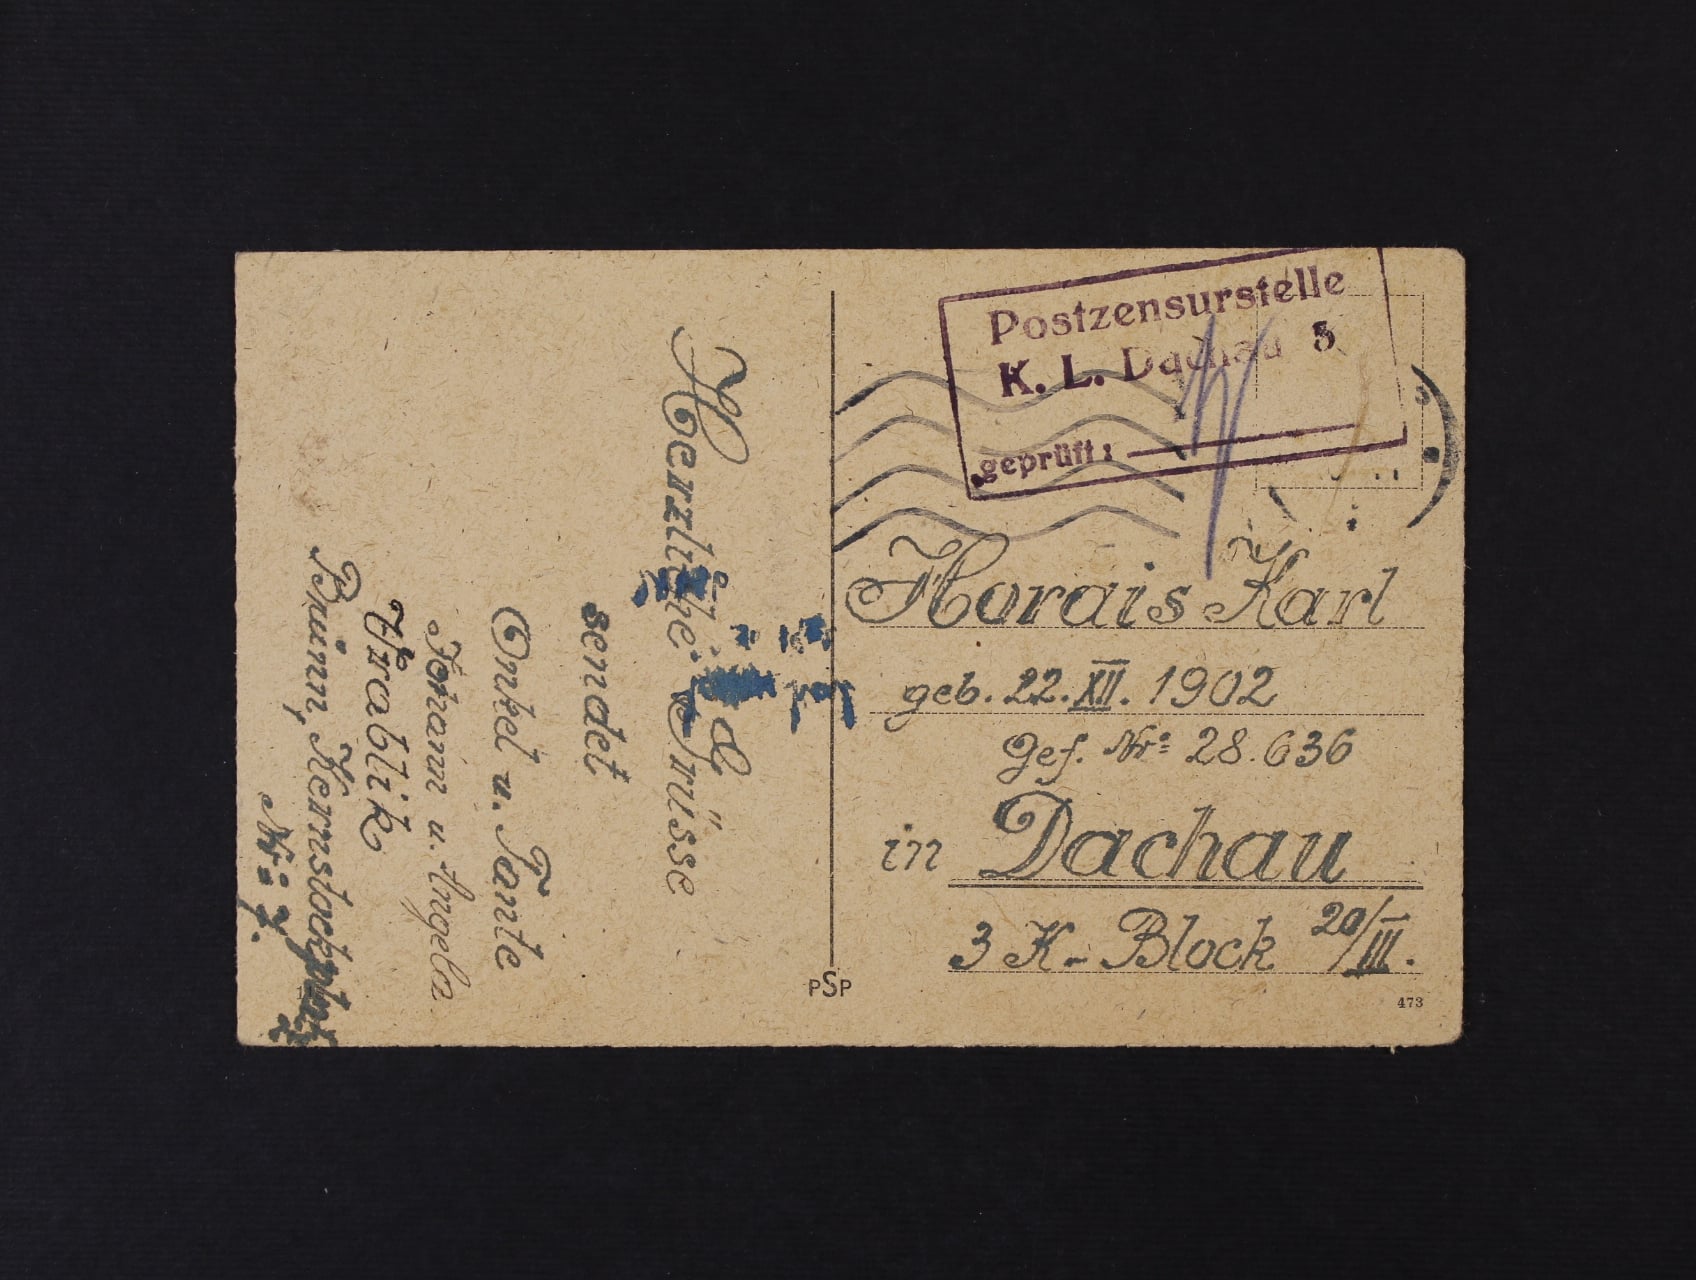 Herzliche Grüsse
sendet
Onkel u. Tante
Johann u. Angela
Hrablik
Brünn, Kernstockplatz
Nr: 7.
Postzensurstelle
K. L. Dachau 3
geprüft:
Horais Karl
geb. 22. XII. 1902
Gef. Nr: 28.636
in Dachau
3 K - Block 20/III.
PSP
473